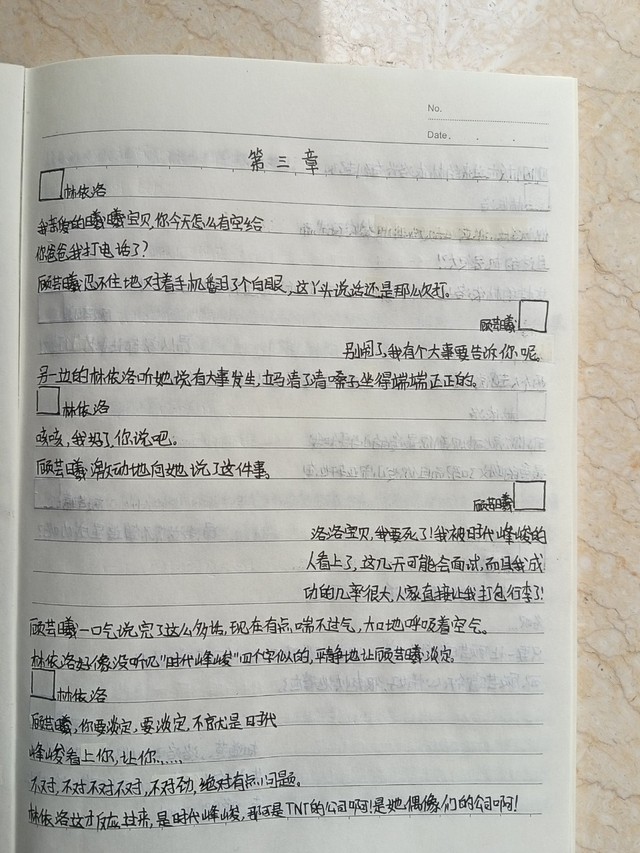 No.
Date.
第三章
林依洛
我亲爱的曦曦宝贝,你今天怎么有空给
你爸爸我打电话了?
顾芸曦忍不住地对着手机翻了个白眼,这丫头说话还是那么欠打。
顾芸曦
别闹了,我有个大事要告诉你呢。
另一边的林依洛听她说有大事发生,立马清了清嗓子坐得端端正正的。
林依洛
咳咳,我好了,你说吧。
顾芸曦激动地向她说了这件事。
顾芸曦
洛洛宝贝,我要死了!我被时代峰峻的
人看上了,这几天可能会面试,而且我成
功的几率很大,人家直接让我打包行李了!
顾芸曦一口气说完了这么多话,现在有点喘不过气,大口地呼吸着空气。
林依洛好像没听见"时代峰峻"四个字似的,平静地让顾芸曦淡定。
林依洛
顾芸曦,你要淡定,要淡定,不就是时代
峰峻看上你,让你......
不对,不对不对不对,不对劲,绝对有点问题。
林依洛这才反应过来,是时代峰峻,那可是TNT的公司啊!是她偶像们的公司啊!